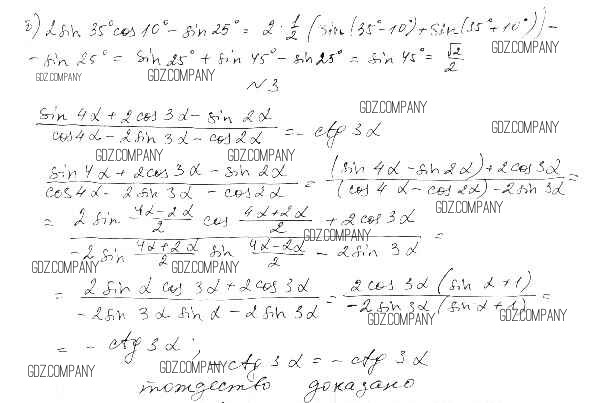 б) 2 sin 35° cos 10° - sin 25° = 2 · 1/2 (sin (35° - 10°) + sin (35° + 10°)) -
- sin 25° = sin 25° + sin 45° - sin 25° = sin 45° = √2/2
GDZ.COMPANY GDZ.COMPANY GDZ.COMPANY
№3
GDZ.COMPANY
(sin 4α + 2 cos 3α - sin 2α)/(cos 4α - 2 sin 3α - cos 2α) = - ctg 3α
GDZ.COMPANY
GDZ.COMPANY GDZ.COMPANY
(sin 4α + 2 cos 3α - sin 2α)/(cos 4α - 2 sin 3α - cos 2α) = ((sin 4α - sin 2α) + 2 cos 3α)/((cos 4α - cos 2α) - 2 sin 3α) =
GDZ.COMPANY
= (2 sin (4α - 2α)/2 cos (4α + 2α)/2 + 2 cos 3α)/(-2 sin (4α + 2α)/2 sin (4α - 2α)/2 - 2 sin 3α) =
GDZ.COMPANY
GDZ.COMPANY GDZ.COMPANY
= (2 sin α cos 3α + 2 cos 3α)/(-2 sin 3α sin α - 2 sin 3α) = (2 cos 3α (sin α + 1))/(-2 sin 3α (sin α + 1)) =
GDZ.COMPANY GDZ.COMPANY
= - ctg 3α ;
GDZ.COMPANY GDZ.COMPANY
- ctg 3α = - ctg 3α
тождество доказано